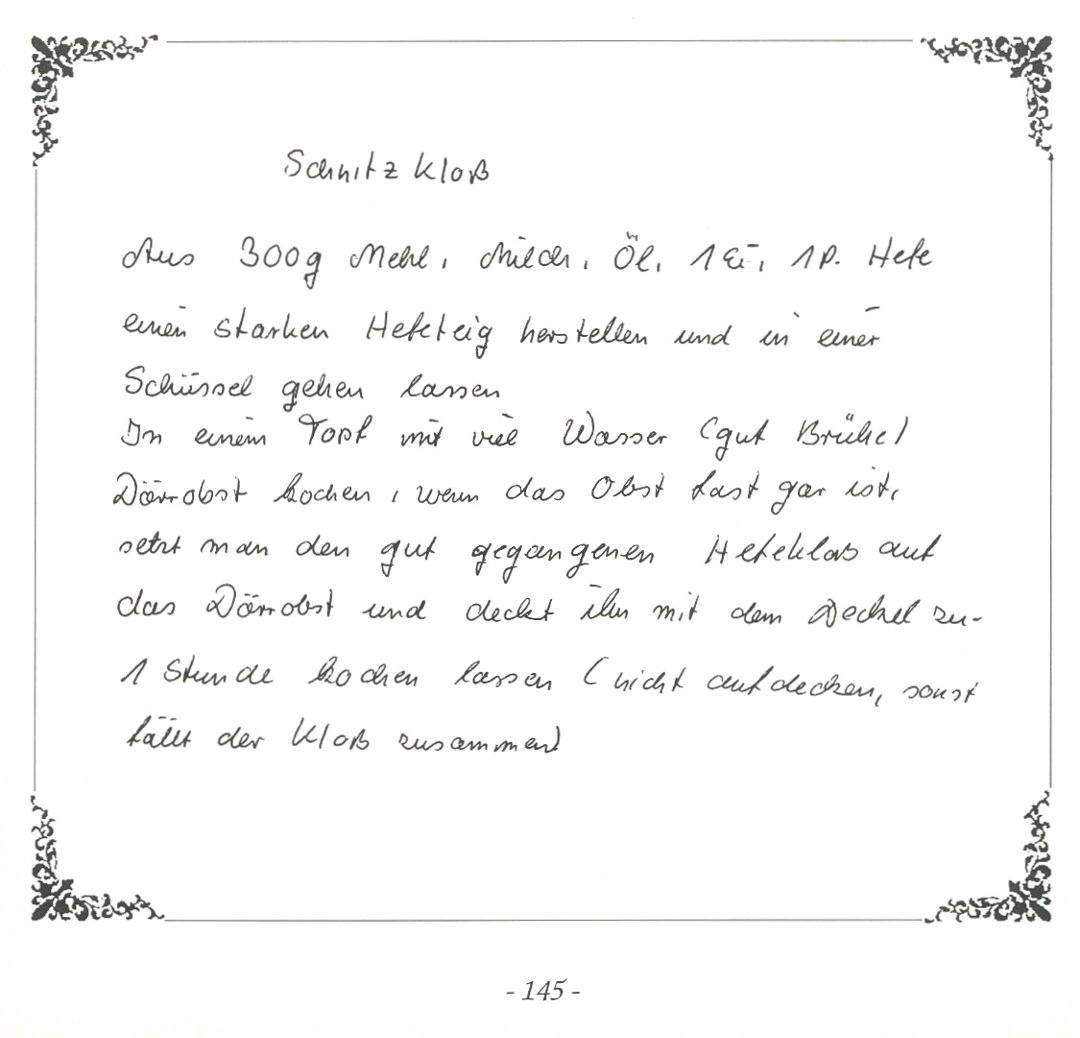 Schnitzkloß
Aus 300g Mehl, Milch, Öl, 1 Ei, 1 P. Hefe
einen starken Hefeteig herstellen und in einer
Schüssel gehen lassen
In einem Topf mit viel Wasser (gut Brühe)
Dörrobst kochen, wenn das Obst fast gar ist,
setzt man den gut gegangenen Hefeklos auf
das Dörrobst und deckt ihn mit dem Deckel zu-
1 Stunde kochen lassen (nicht aufdecken, sonst
fällt der Kloß zusammen)
- 145 -